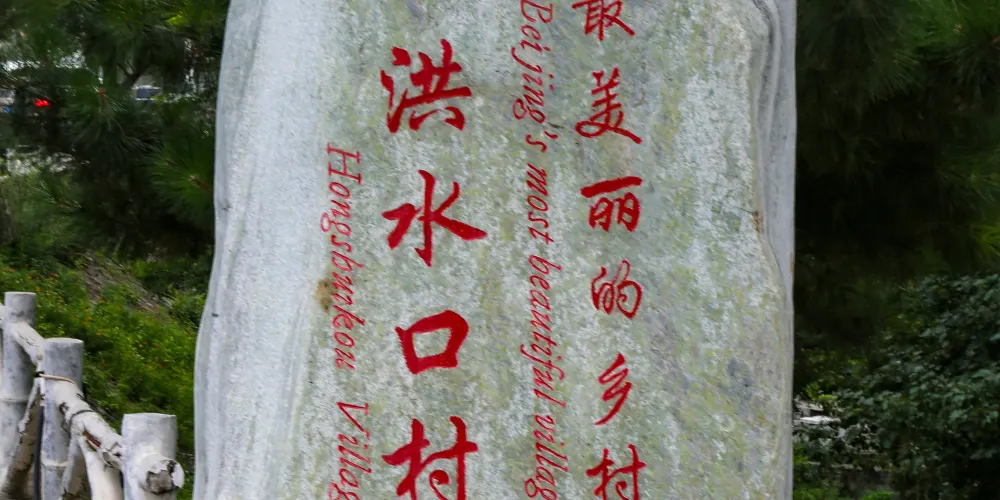 最美的丽乡村
Beijing's most beautiful villag
洪水口村
Hongshuikou Villag